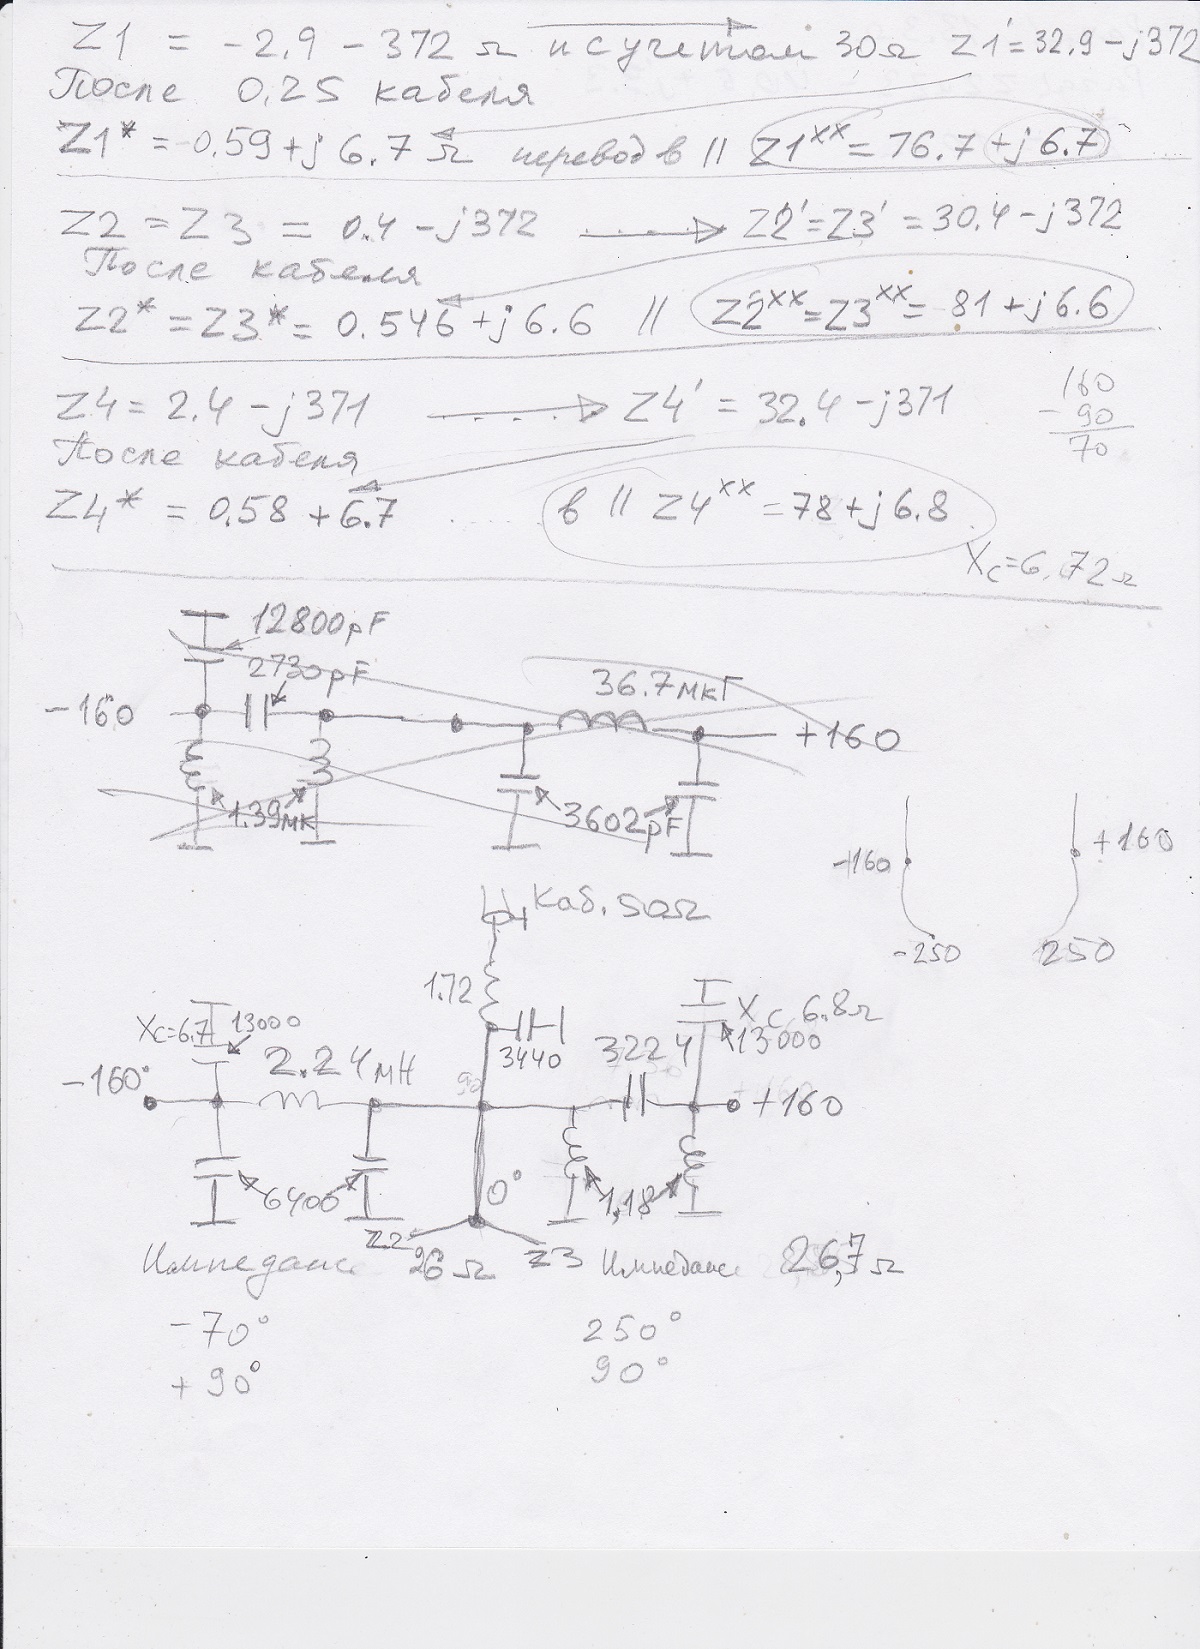 Z1 = -2.9 - 372 Ω и с учетом 30Ω Z1' = 32.9 - j372
После 0.25 кабеля
Z1* = 0.59 + j 6.7 Ω перевод в // Z1xx = 76.7 + j 6.7
Z2 = Z3 = 0.4 - j372 Z2' = Z3' = 30.4 - j372
После кабеля
Z2* = Z3* = 0.546 + j 6.6 // Z2xx = Z3xx = 81 + j 6.6
Z4 = 2.4 - j371 Z4' = 32.4 - j371
160
- 90
70
После кабеля
Z4* = 0.58 + 6.7 в // Z4xx = 78 + j 6.8
Xc = 6.72Ω
12800pF
2730pF
36.7мкГ
-160
+160
1.39мк
3602pF
-160
+160
-250
250
Каб. 50Ω
1.72
Xc=6.7
13000
Xc 6.8Ω
13000
3440
3224
2.24мН
-160°
90
+160
6400
0°
1,18
Z2
Z3
Импеданс 26Ω
Импеданс 26,7Ω
-70°
250°
+90°
90°